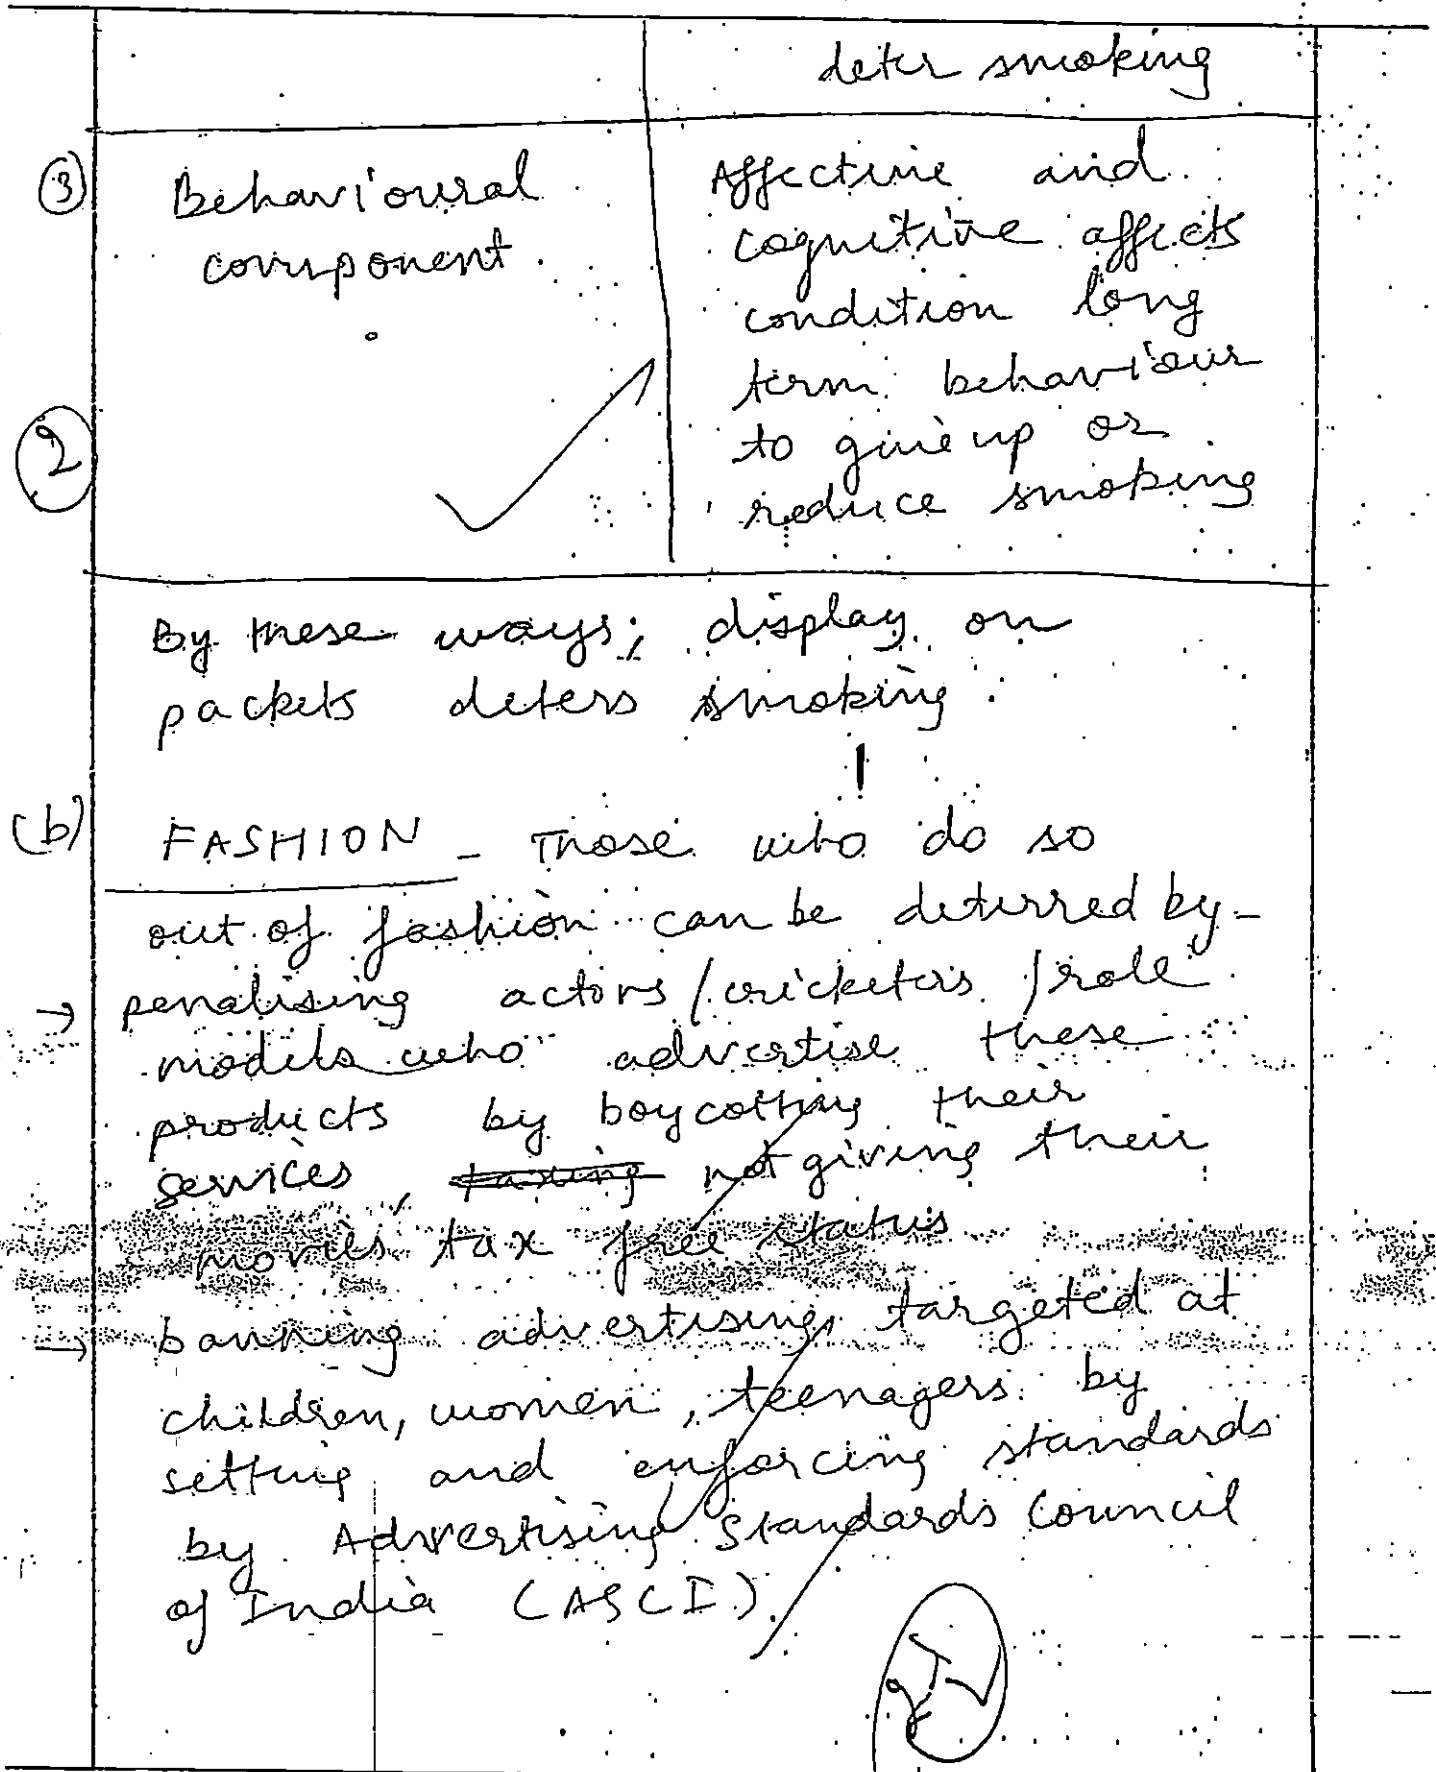 deter smoking
③ Behavioural component. Affective and
cognitive affects
condition long
term behaviour
to give up or
reduce smoking
②
By these ways, display on
packets deters smoking.
(b) FASHION - Those who do so
out of fashion can be deterred by-
→ penalising actors / cricketers / role
models who advertise these
products by boycotting their
services, taxing not giving their
movies tax free status
→ banning advertising targeted at
children, women, teenagers by
setting and enforcing standards
by Advertising Standards Council
of India (ASCI).